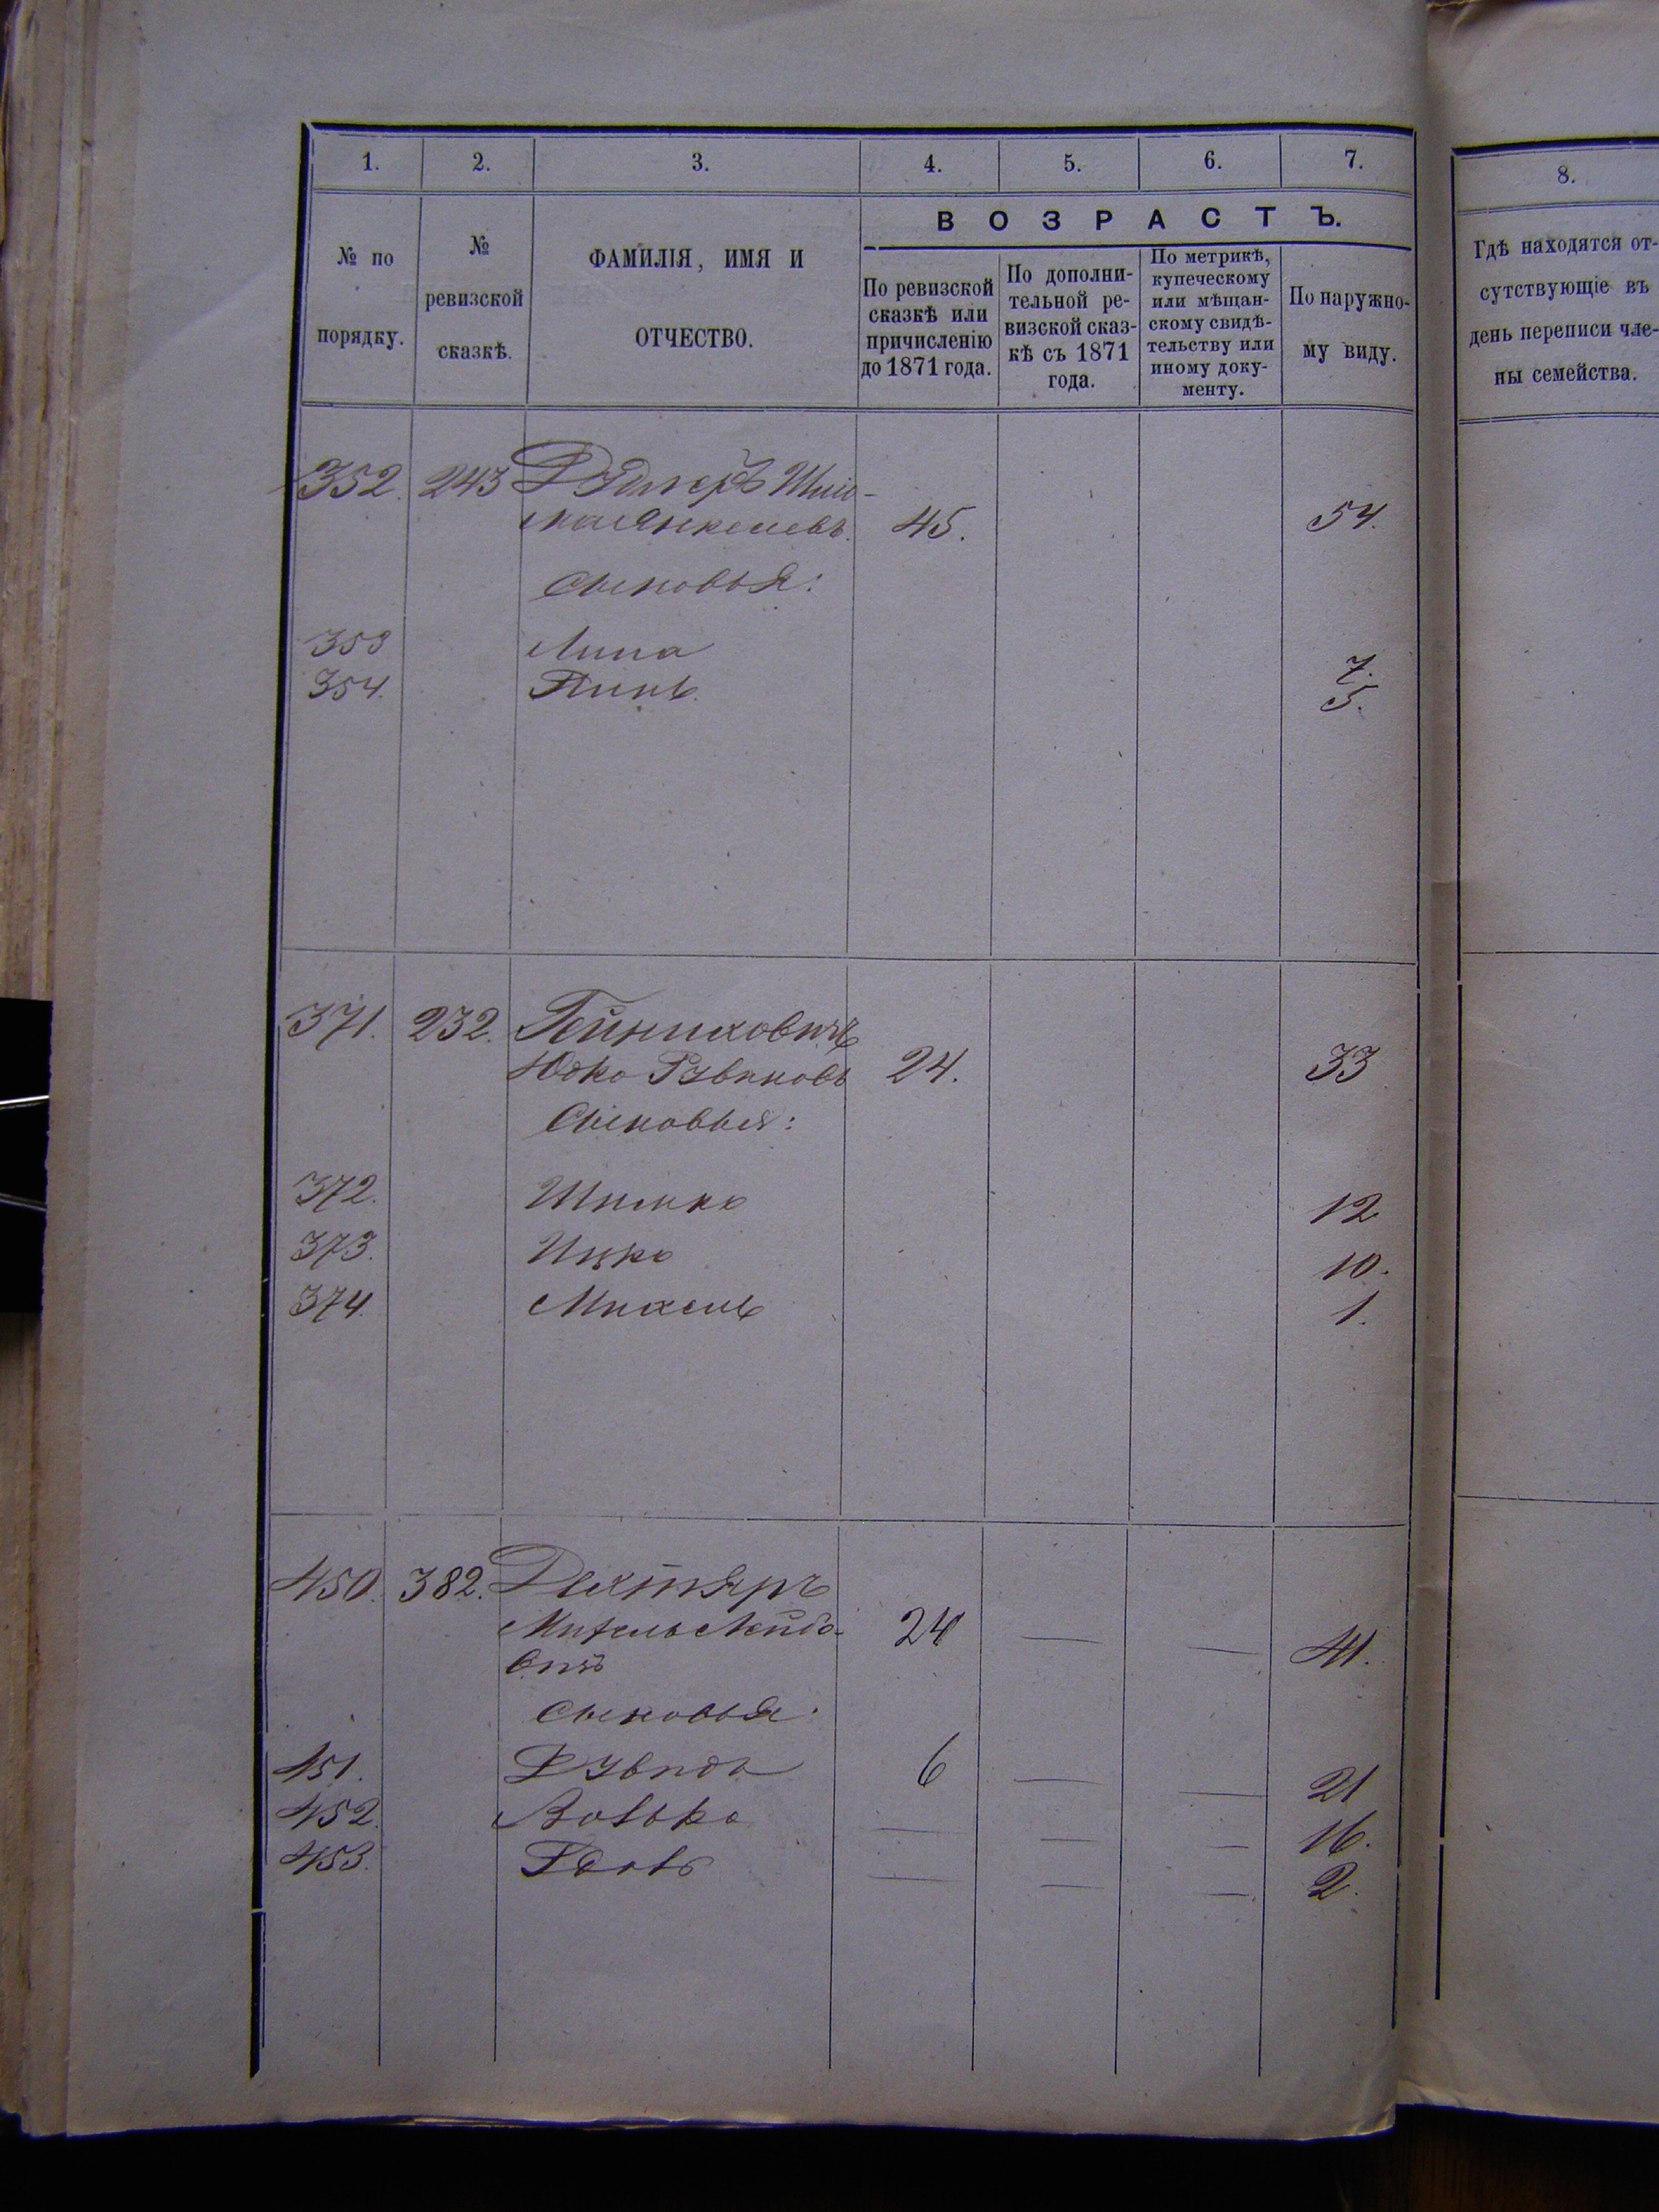 1. 2. 3. 4. 5. 6. 7. 8.
ВОЗРАСТЪ.
№ по порядку.
№ ревизской сказкѣ.
ФАМИЛІЯ, ИМЯ И ОТЧЕСТВО.
По ревизской сказкѣ или причисленію до 1871 года.
По дополнительной ревизской сказкѣ съ 1871 года.
По метрикѣ, купеческому или мѣщанскому свидѣтельству или иному документу.
По наружному виду.
Гдѣ находятся отсутствующіе въ день переписи члены семейства.
352. 243
Янкелевъ. 45. 54.
Сыновья:
353 Липа 7.
354. Пинь. 5.
371. 232. Гейниховичъ
Юдко Рувиновъ 24. 33
Сыновья:
372. Шимко 12
373. Ицко 10.
374. Михель 1.
450. 382. Дехтяръ
Михель Лейбо- 24 — — 41.
вичъ
Сыновья:
451. 6 — — 21
452. Волько — — — 16.
453. — — — 2.